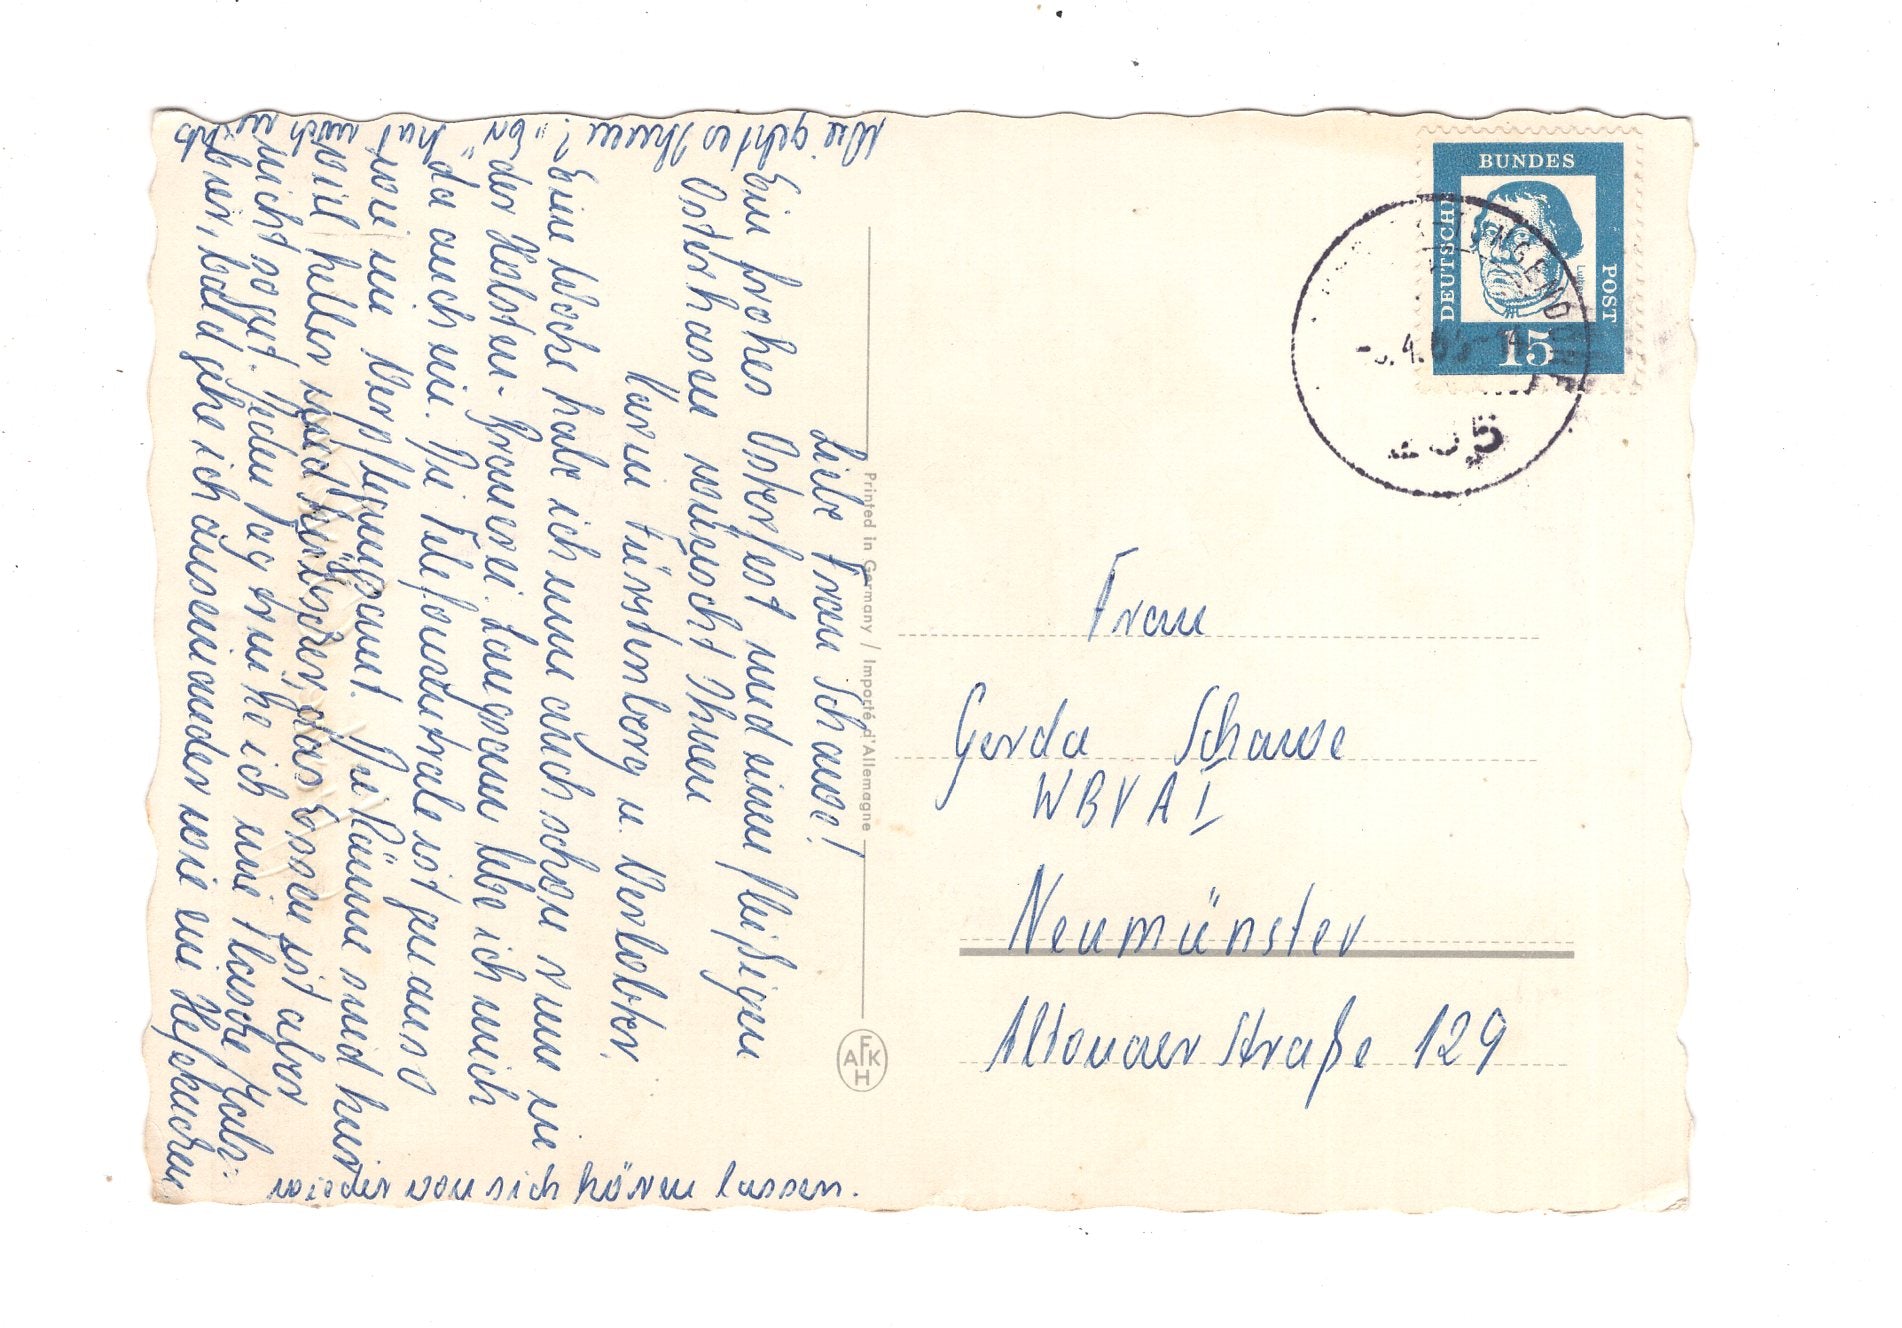 Liebe Frau Schawe!
Ein frohes Osterfest und einen fleißigen
Osterhasen wünscht Ihnen
Karin Fürstenberg u. Verlobter.
Eine Woche habe ich nun auch schon rum in
der Holsten-Brauerei. Langsam lebe ich mich
da auch ein. Die Telefonzentrale ist genauso
wie im Verpflegungsamt. Die Räume sind hier
viel heller und hübscher, das Essen ist aber
nicht so gut. Jeden Tag trinke ich eine Flasche Malz-
bier, bald gehe ich auseinander wie ein Hefekuchen
Wie geht es Ihnen? "Er" hat noch nichts
wieder von sich hören lassen.
Printed in Germany / Importé d'Allemagne
AFKH
DEUTSCHE
BUNDES
POST
Luther
15
4.
14
Frau
Gerda Schawe
WBVA I
Neumünster
Altonaer Straße 129